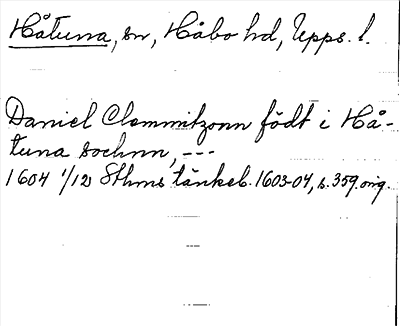 Håtuna, sn, Håbo hd, Upps. l.
Daniel Clemmitzonn födt i Hå-
tuna sochnn, ---
1604 1/12 Sthms tänkeb. 1603-04, s. 359. orig.